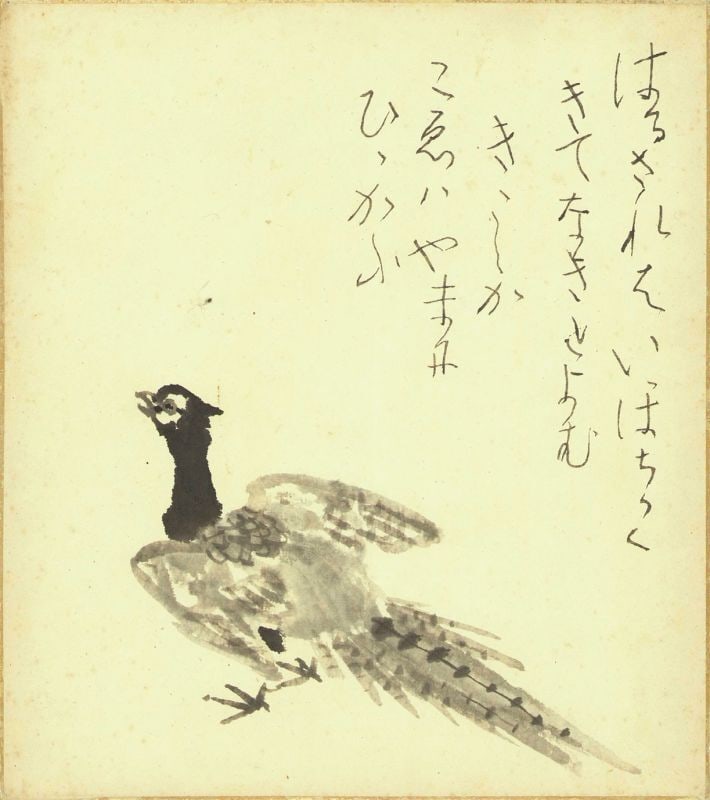 はるされはいほちかく
きてなきとよむ
きゝしか
こゑハやまに
ひゝかふ